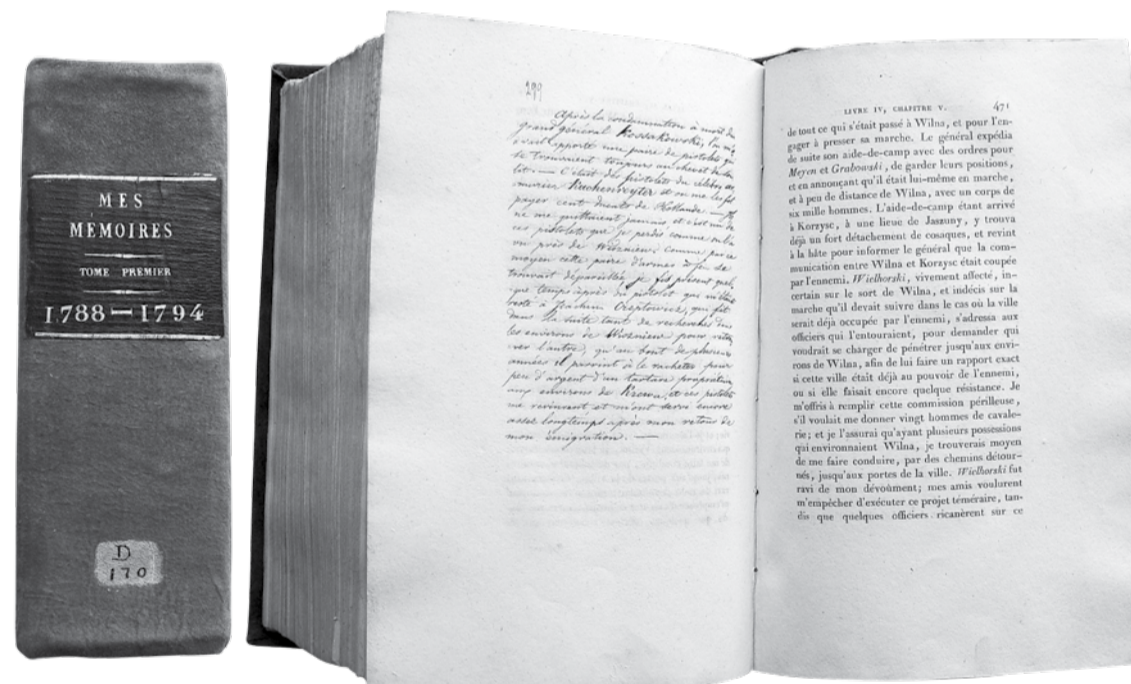 MES
MEMOIRES
TOME PREMIER
1788—1794
D
170
299
Après la condamnation à mort du
grand général Kossakowski, l'on m'a
vait apporté une paire de pistolets qui
se trouvaient toujours au chevet de son
lit — C'était des pistolets du célèbre ar
murier Kuchenreyter et on me les fit
payer cent ducats de Hollande — Ils
ne me quittaient jamais et c'est un de
ces pistolets que je perdis comme on l'a
vu près de Wiszniew; comme par ce
moyen cette paire d'armes à feu se
trouvait dépareillée, je fis présent quel-
que temps après du pistolet qui m'était
resté à Joachim Chreptowicz, qui fit
dans la suite tant de recherches dans
les environs de Wiszniew pour retrou
ver l'autre, qu'au bout de plusieurs
années il parvint à le racheter pour
peu d'argent d'un tartare propriétaire
aux environs de Krewa, et ces pistolets
me revinrent et m'ont servi encore
assez longtemps après mon retour de
mon émigration. —
LIVRE IV, CHAPITRE V. 471
de tout ce qui s'était passé à Wilna, et pour l'en-
gager à presser sa marche. Le général expédia
de suite son aide-de-camp avec des ordres pour
Meyen et Grabowski, de garder leurs positions,
et en annonçant qu'il était lui-même en marche,
et à peu de distance de Wilna, avec un corps de
six mille hommes. L'aide-de-camp étant arrivé
à Korzysc, à une lieue de Jaszuny, y trouva
déjà un fort détachement de cosaques, et revint
à la hâte pour informer le général que la com-
munication entre Wilna et Korzysc était coupée
par l'ennemi. Wielhorski, vivement affecté, in-
certain sur le sort de Wilna, et indécis sur la
marche qu'il devait suivre dans le cas où la ville
serait déjà occupée par l'ennemi, s'adressa aux
officiers qui l'entouraient, pour demander qui
voudrait se charger de pénétrer jusqu'aux envi-
rons de Wilna, afin de lui faire un rapport exact
si cette ville était déjà au pouvoir de l'ennemi,
ou si elle faisait encore quelque résistance. Je
m'offris à remplir cette commission périlleuse,
s'il voulait me donner vingt hommes de cavale-
rie; et je l'assurai qu'ayant plusieurs possessions
qui environnaient Wilna, je trouverais moyen
de me faire conduire, par des chemins détour-
nés, jusqu'aux portes de la ville. Wielhorski fut
ravi de mon dévoûment; mes amis voulurent
m'empêcher d'exécuter ce projet téméraire, tan-
dis que quelques officiers ricanèrent sur ce